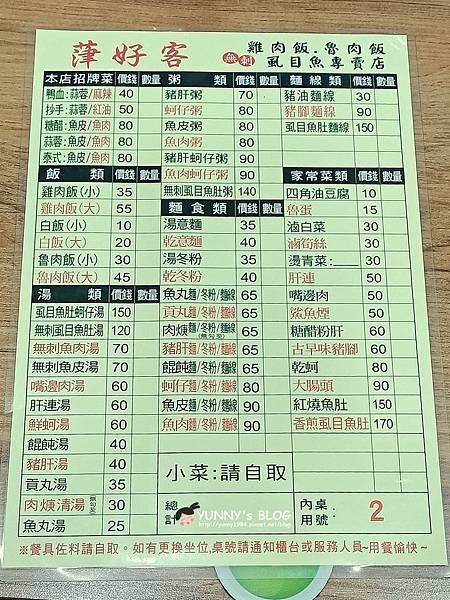 萍好客 無刺 雞肉飯.魯肉飯
虱目魚專賣店
本店招牌菜 價錢 數量
鴨血:蒜蓉/麻辣 40
抄手:蒜蓉/紅油 50
糖醋:魚皮/魚肉 80
蒜蓉:魚皮/魚肉 80
泰式:魚皮/魚肉 80
飯 類 價錢 數量
雞肉飯(小) 35
雞肉飯(大) 55
白飯(小) 10
白飯(大) 20
魯肉飯(小) 30
魯肉飯(大) 45
湯 類 價錢 數量
虱目魚肚蚵仔湯 150
無刺虱目魚肚湯 120
無刺魚肉湯 70
無刺魚皮湯 70
嘴邊肉湯 60
肝連湯 60
鮮蚵湯 60
餛飩湯 40
豬肝湯 40
貢丸湯 30
肉焿清湯(無勾芡) 30
魚丸湯 25
粥 類 價錢 數量
豬肝粥 70
蚵仔粥 80
魚皮粥 80
魚肉粥 80
豬肝蚵仔粥 90
魚肉蚵仔粥 90
無刺虱目魚肚粥 140
麵食類 價錢 數量
湯意麵 35
乾意麵 40
湯冬粉 35
乾冬粉 40
魚丸麵/冬粉/麵線 65
貢丸麵/冬粉/麵線 65
肉焿麵/冬粉/麵線(無勾芡) 65
豬肝麵/冬粉/麵線 65
餛飩麵/冬粉/麵線 65
蚵仔麵/冬粉/麵線 80
魚皮麵/冬粉/麵線 90
魚肉麵/冬粉/麵線 90
麵線類 價錢 數量
豬油麵線 30
豬腳麵線 90
虱目魚肚麵線 150
家常菜類 價錢 數量
四角油豆腐 10
魯蛋 15
滷白菜 30
滷筍絲 30
燙青菜:____ 30
肝連 50
嘴邊肉 50
鯊魚煙 50
糖醋粉肝 60
古早味豬腳 60
乾蚵 80
大腸頭 90
紅燒魚肚 150
香煎虱目魚肚 170
小菜:請自取
總計
YUNNY's BLOG
http://yunny1984.pixnet.net/blog
內用 桌號: 2
※餐具佐料請自取。如有更換坐位,桌號請通知櫃台或服務人員~用餐愉快~